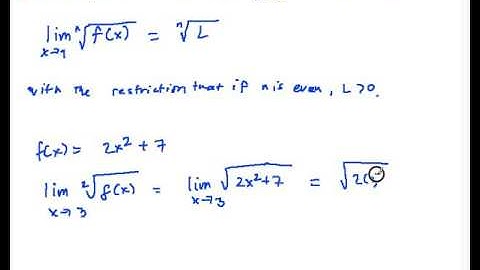 lim x→1 ⁿ√f(x) = ⁿ√L
with the restriction that if n is even, L>0.
f(x) = 2x² + 7
lim x→3 ²√f(x) = lim x→3 √2x²+7 = √2(